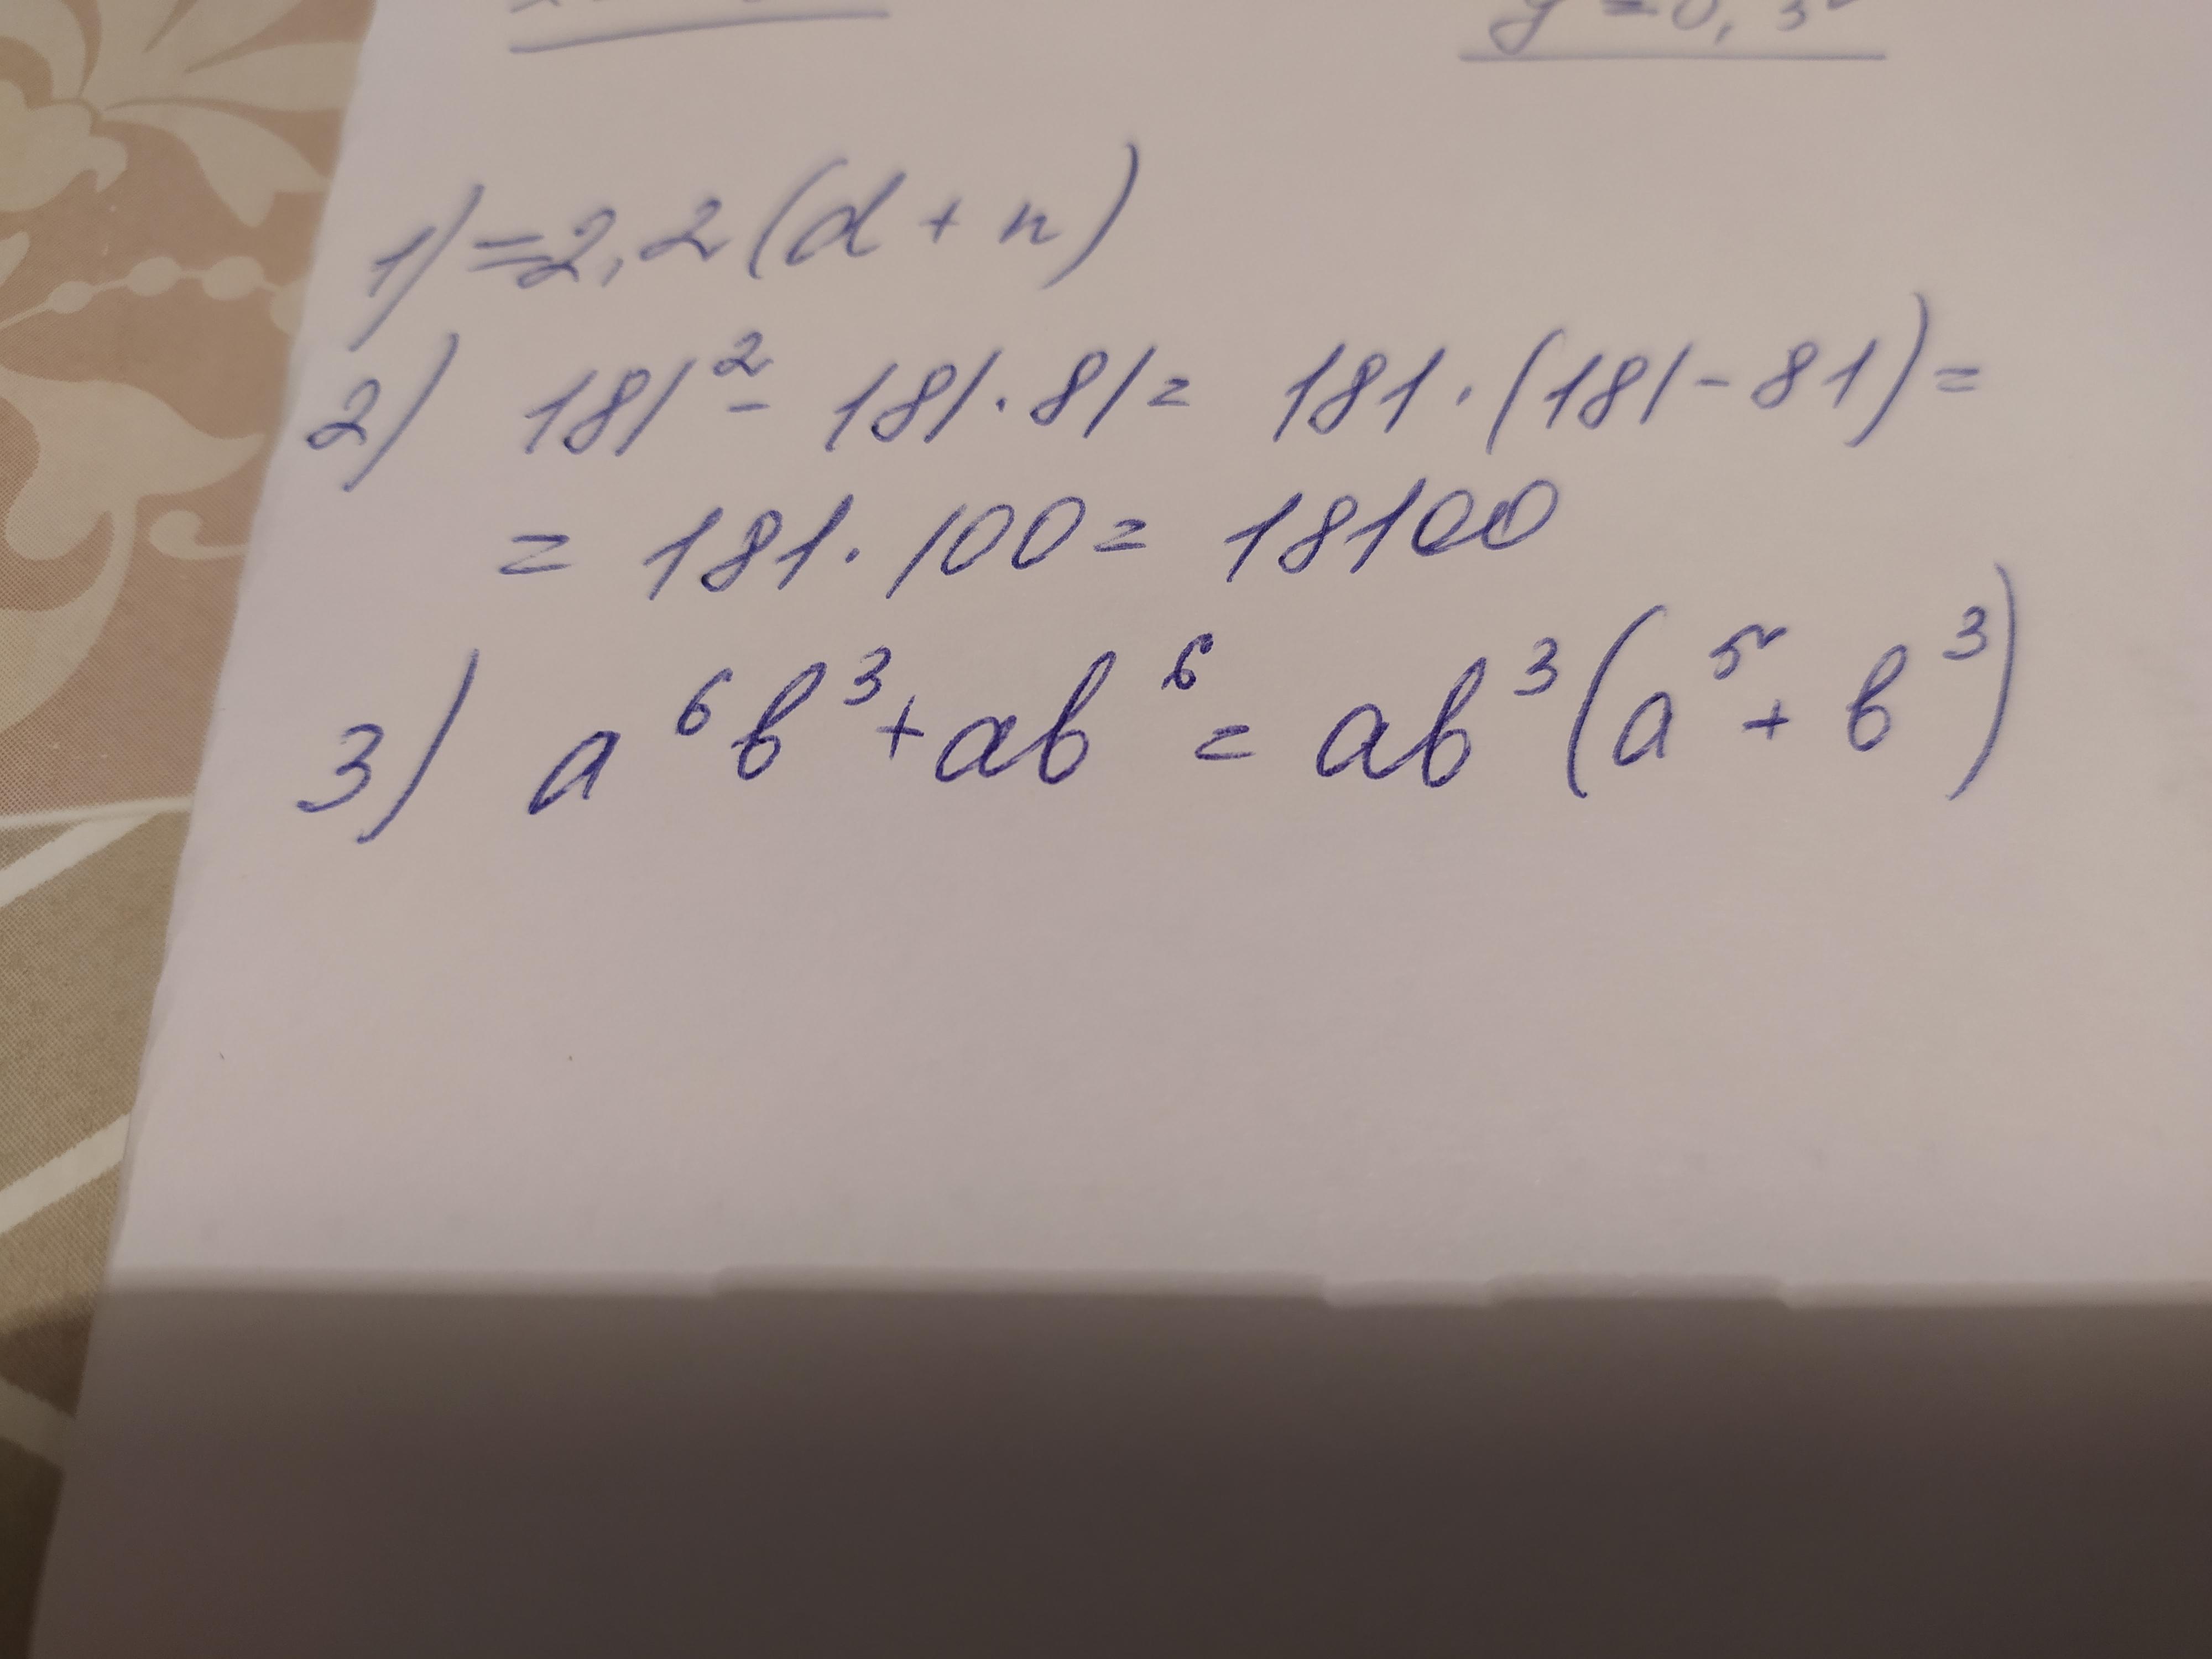 y = 0,3
1) = 2,2 (d + n)
2) 181² - 181 · 81 = 181 · (181 - 81) =
= 181 · 100 = 18100
3) a⁶b³ + ab⁶ = ab³(a⁵ + b³)